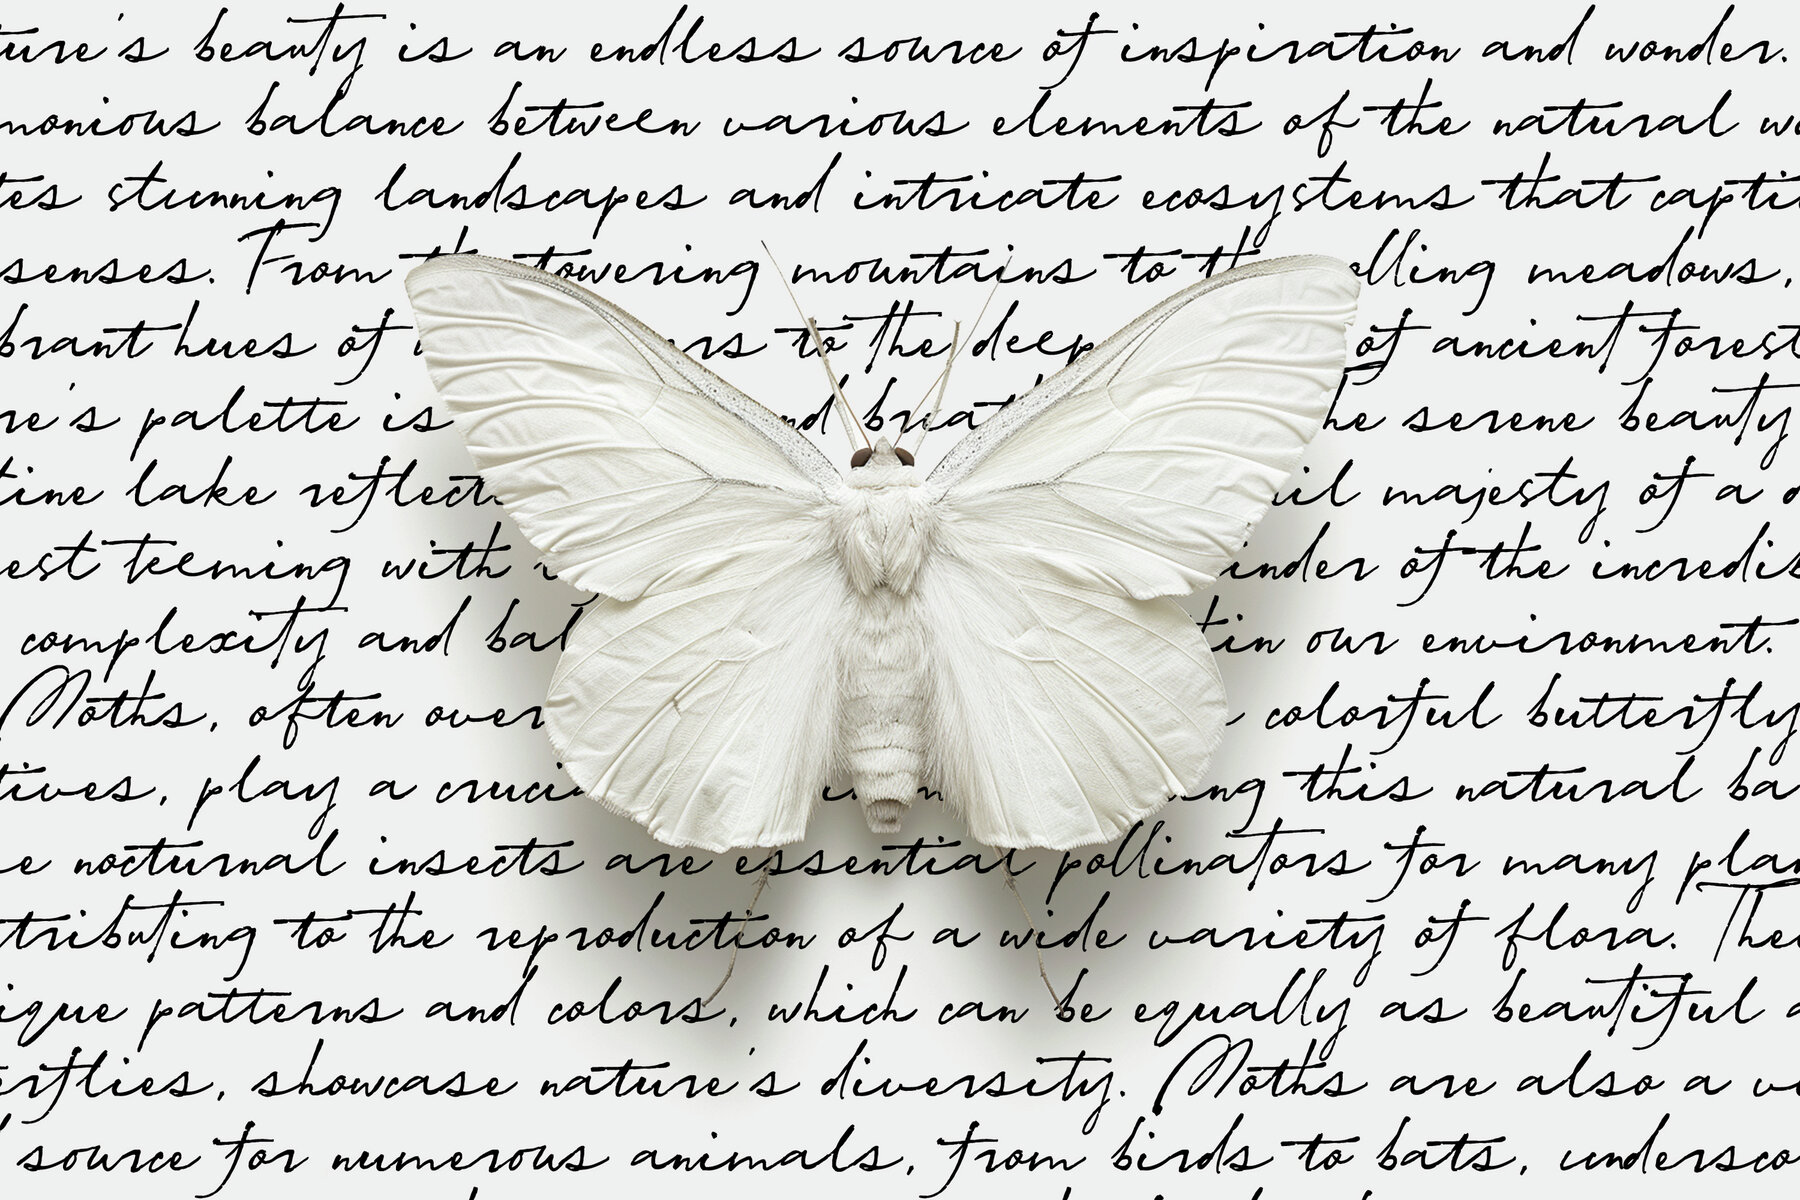 ture's beauty is an endless source of inspiration and wonder.
monious balance between various elements of the natural
tes stunning landscapes and intricate ecosystems that
senses. From towering mountains to the rolling meadows,
brant hues of to the deep of ancient forest
re's palette is he serene beauty
tine lake majesty of a
est teeming with of the
complexity and our environment.
Moths, often colorful butterfly
tives, play a this natural
e nocturnal insects are essential pollinators for many
tributing to the reproduction of a wide variety of flora.
ique patterns and colors, which can be equally as beautiful
erflies, showcase nature's diversity. Moths are also a
source for numerous animals, from birds to bats,